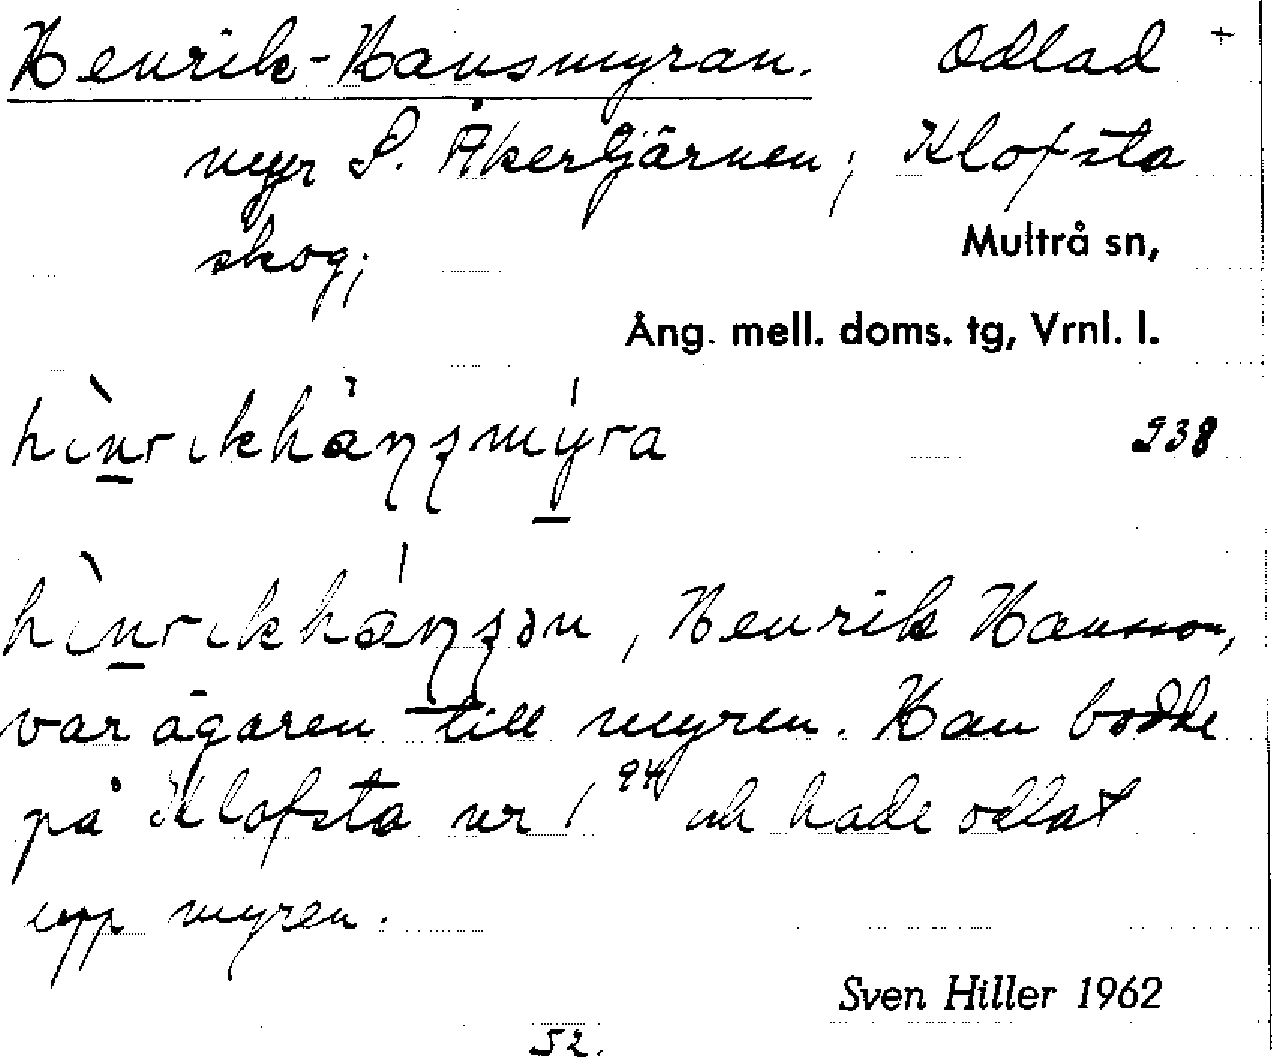 Henrik-Hansmyran. Odlad +
myr S. Åkertjärnen; Klofsta
skog;
Multrå sn,
Ång. mell. doms. tg, Vrnl. l.
hìnrɩkhàn̨s̨mýra 238
hìnrɩkhán̨s̨ɔn, Henrik Hansson,
var ägaren till myren. Han bodde
på Klofsta nr 1⁹⁴ och hade odlat
upp myren.
Sven Hiller 1962
52.